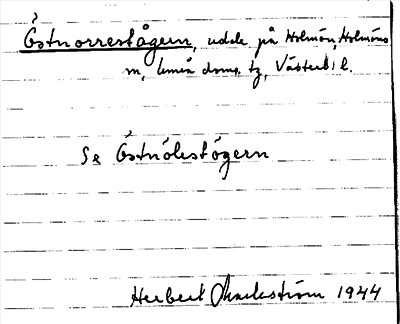 Östnorrestågern, udde på Holmön, Holmöns
sn, Umeå doms. tg, Västerb. l.
Se Östnólestógern
Herbert Markström 1944